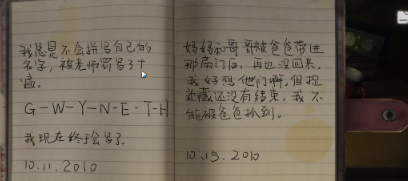 我总是不会拼写自己的
名字，被老师罚写了十
遍。
G-W-Y-N-E-T-H
我现在终于会写了
10.11.2010
妈妈和哥哥被爸爸带进
那扇门后，再也没回来，
我好想他们啊。但捉
迷藏还没有结束，我不
能被爸爸抓到。
10.13.2010